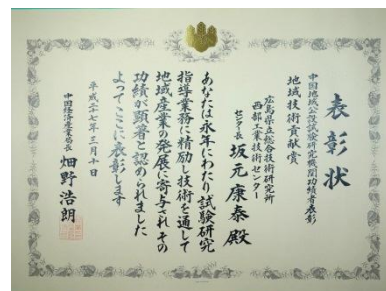 表彰状
中国地域公設試験研究機関功績者表彰
地域技術貢献賞
広島県立総合技術研究所
西部工業技術センター
センター長 坂元康泰殿
あなたは永年にわたり試験研究
指導業務に精励し技術を通して
地域産業の発展に寄与されその
功績が顕著と認められました
よってここに表彰します
平成二十七年三月十日
中国経済産業局長 畑野浩朗